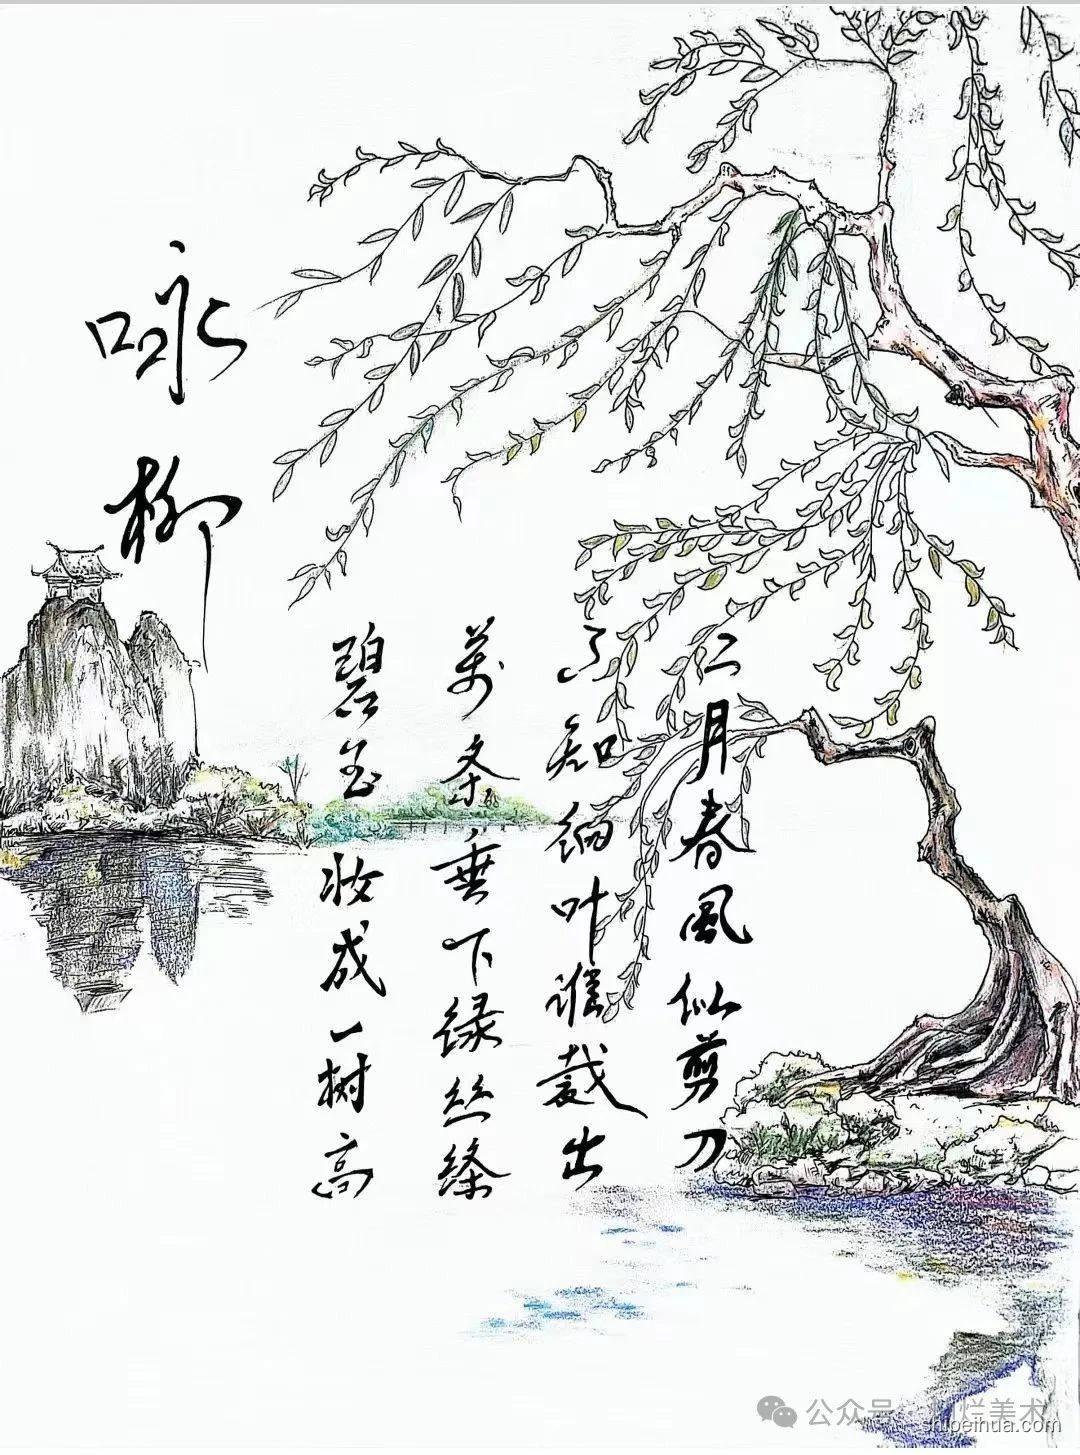 咏柳
碧玉妆成一树高
萬条垂下绿丝绦
不知细叶谁裁出
二月春風似剪刀
公众号 烂美术
shipeihua.com